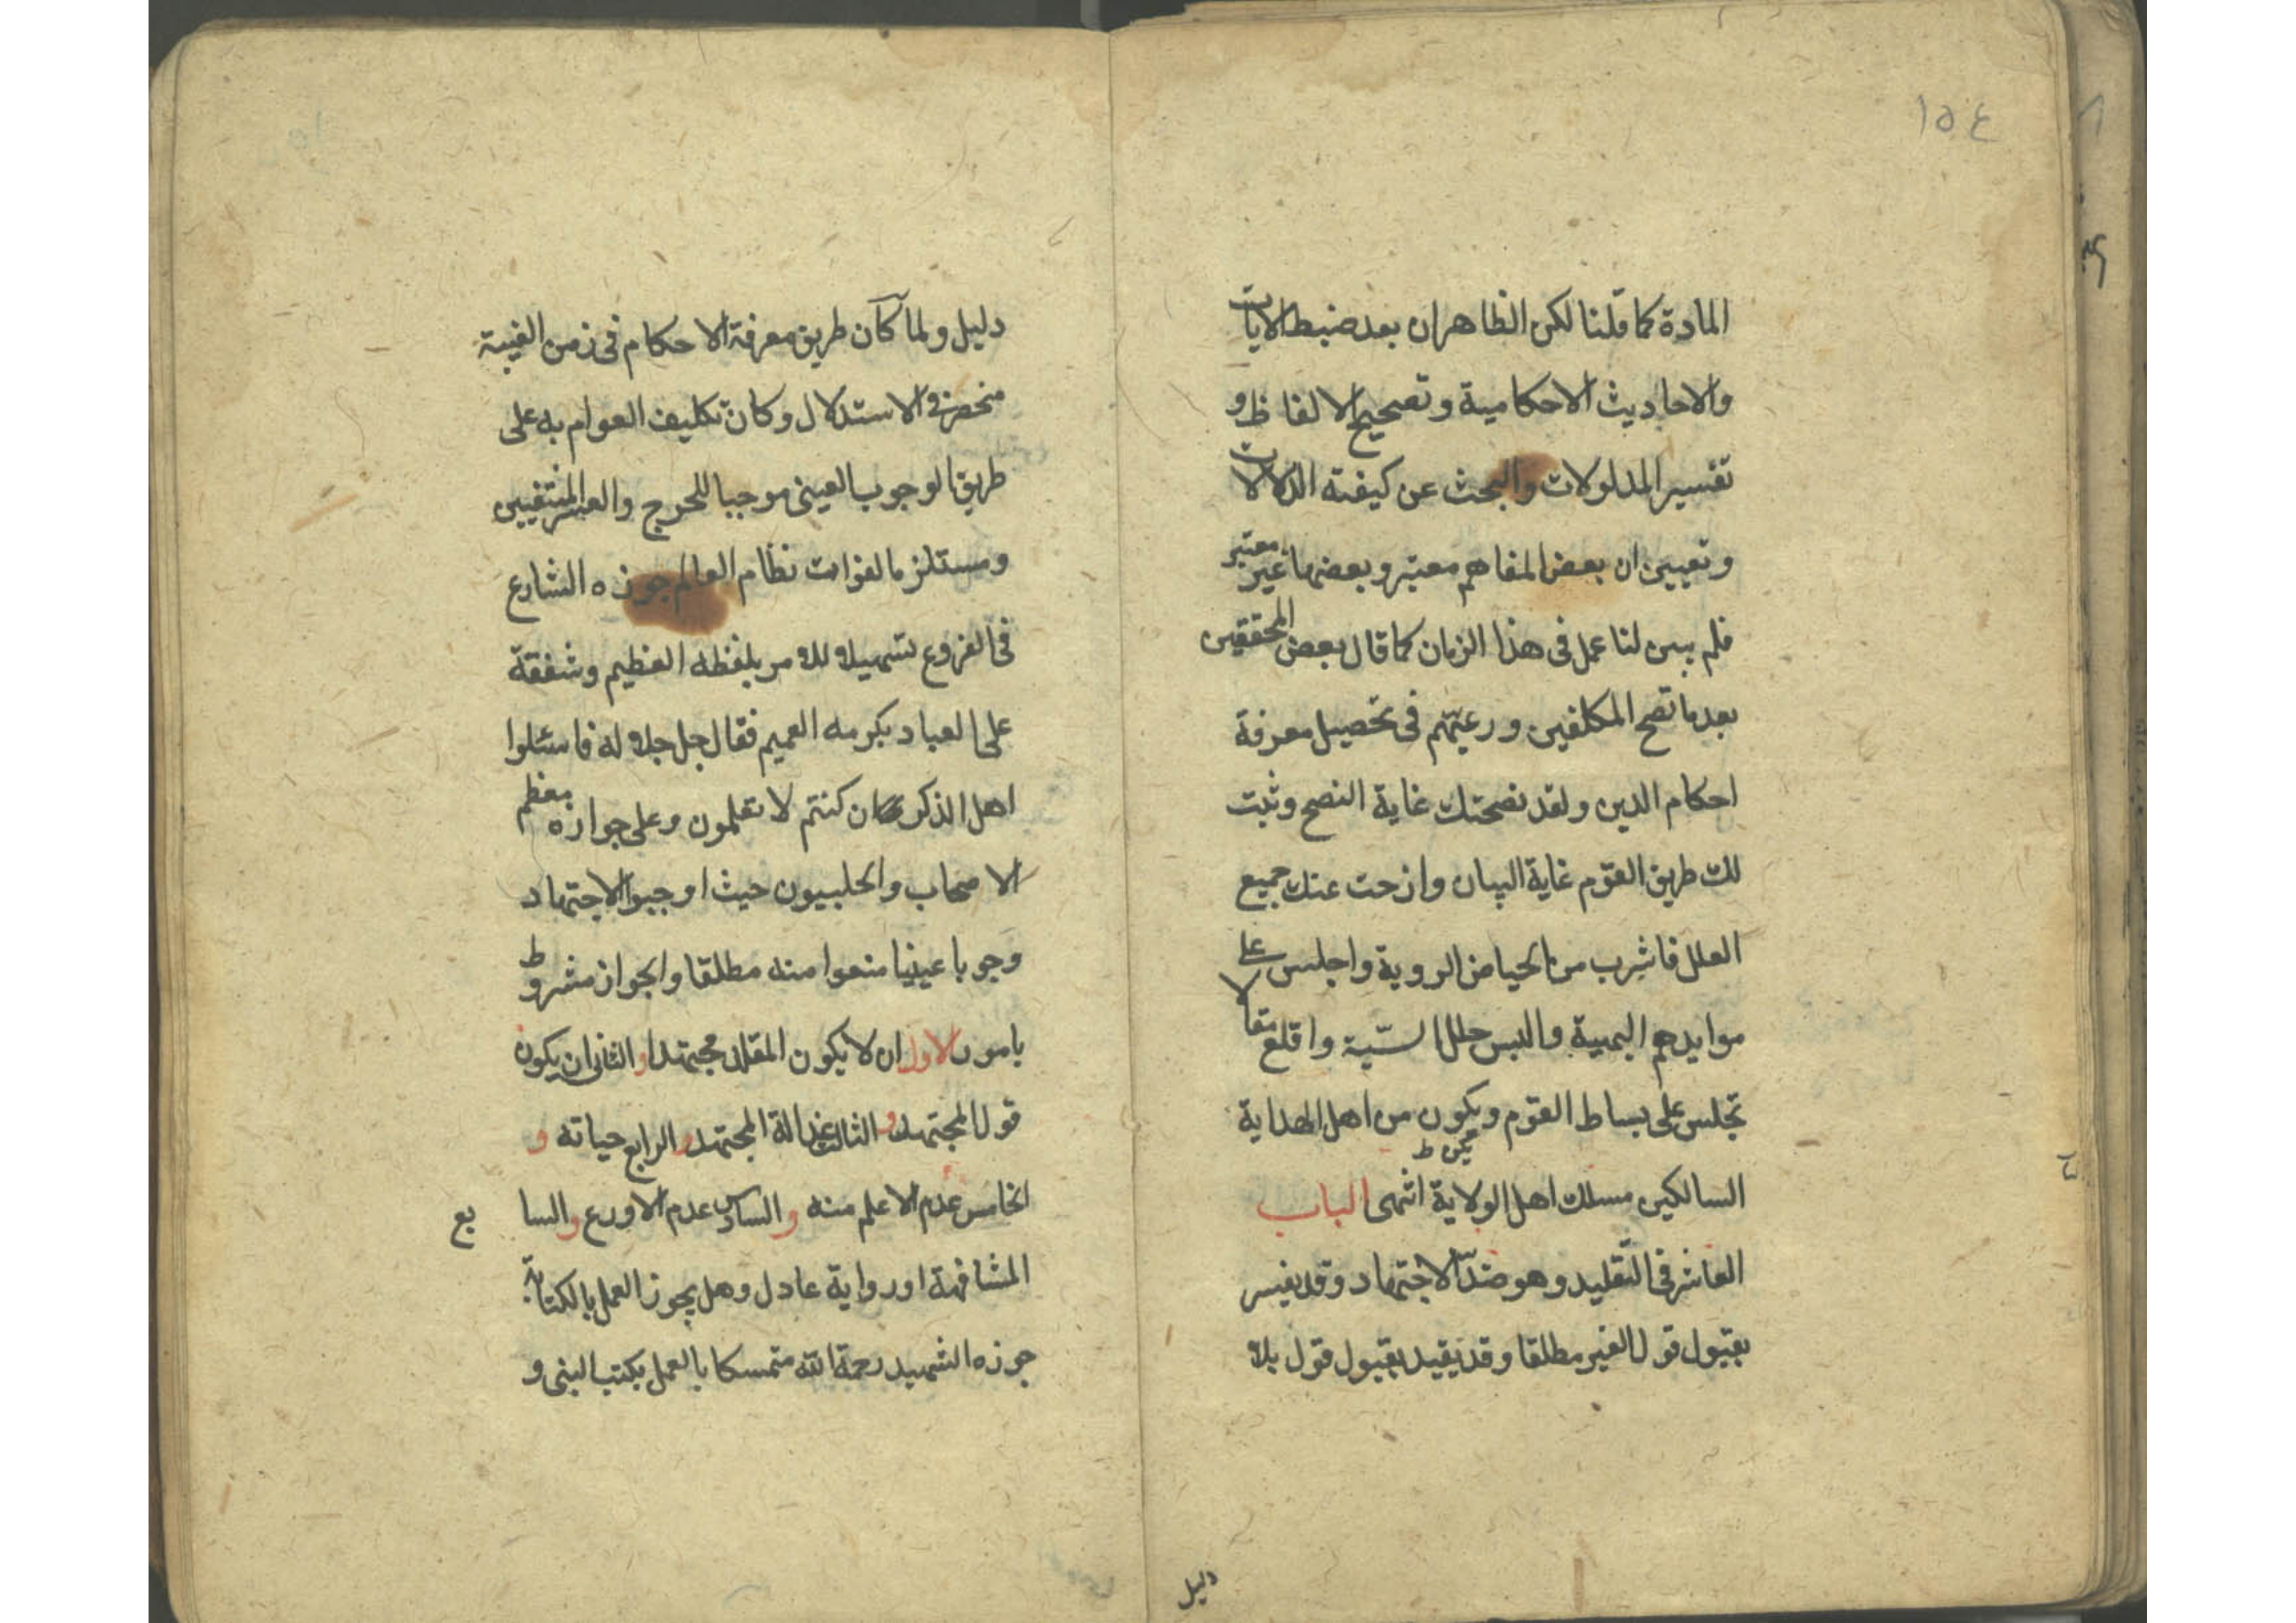 ١٥٤
المادة كما قلنا لكن الظاهر ان بعد ضبط الايات
والاحاديث الاحكامية وتصحيح الالفاظ و
تفسير المدلولات والبحث عن كيفية الدلالات
وتعيين ان بعض المفاهيم معتبر وبعضها غير معتبر
فلم يبق لنا عمل فى هذا الزمان كما قال بعض المحققين
بعد ما نصح المكلفين ورغبتهم فى تحصيل معرفة
احكام الدين ولقد نصحتك غاية النصح وثبت
لك طريق القوم غاية البيان وازحت عنك جميع
العلل فاشرب من الحياض الروية واجلس على
موايدهم البهية والبس حلل السنية واقلع
تجلس على بساط القوم ويكون من اهل الهداية
السالكين مسلك اهل الولاية انتهى الباب
العاشر فى التقليد وهو ضد الاجتهاد وقد يفسر
بقبول قول الغير مطلقا وقد يقيد بقبول قول بلا
دليل
دليل ولما كان طريق معرفة الاحكام فى زمن الغيبة
منحصر فى الاستدلال وكان تكليف العوام به على
طريق الوجوب العينى موجبا للحرج والعسر المنتفيين
ومستلزما لفوات نظام العالم جوزه الشارع
فى الفروع تسهيلا للامر بلفظه العظيم وشفقة
على العباد بكرمه العميم فقال جل جلاله فاسئلوا
اهل الذكر ان كنتم لا تعلمون وعلى جوازه معظم
الاصحاب والحلبيون حيث اوجبوا الاجتهاد
وجوبا عينيا منعوا منه مطلقا والجواز مشروط
بامور الاول ان لا يكون المقلد مجتهدا والثانى ان يكون
قول المجتهد والثالث عدالة المجتهد والرابع حياته و
الخامس عدم الاعلم منه والسادس عدم الاورع والسابع
المشافهة او رواية عادل وهل يجوز العمل بالكتابة
جوزه الشهيد رحمة الله متمسكا بالعمل بكتب النبى و